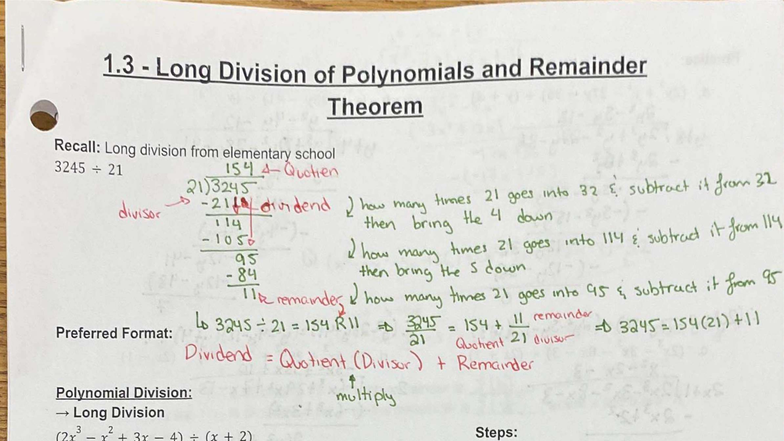 1.3 - Long Division of Polynomials and Remainder
Theorem
Recall: Long division from elementary school
3245 ÷ 21
154 ← Quotien
21)3245
divisor →
-21↓ dividend
114
-105↓
95
-84
11 ← remainder
↓ how many times 21 goes into 32 & subtract it from 32
then bring the 4 down.
↓ how many times 21 goes into 114 & subtract it from 114
then bring the 5 down
↓ how many times 21 goes into 95 & subtract it from 95
Preferred Format:
↳ 3245 ÷ 21 = 154 R 11 ⇒ 3245/21 = 154 + 11/21 ⇒ 3245 = 154(21) + 11
remainder
Quotient
divisor
Dividend = Quotient (Divisor) + Remainder
↑
multiply
Polynomial Division:
→ Long Division
(2x³ − x² + 3x − 4) ÷ (x + 2)
Steps: